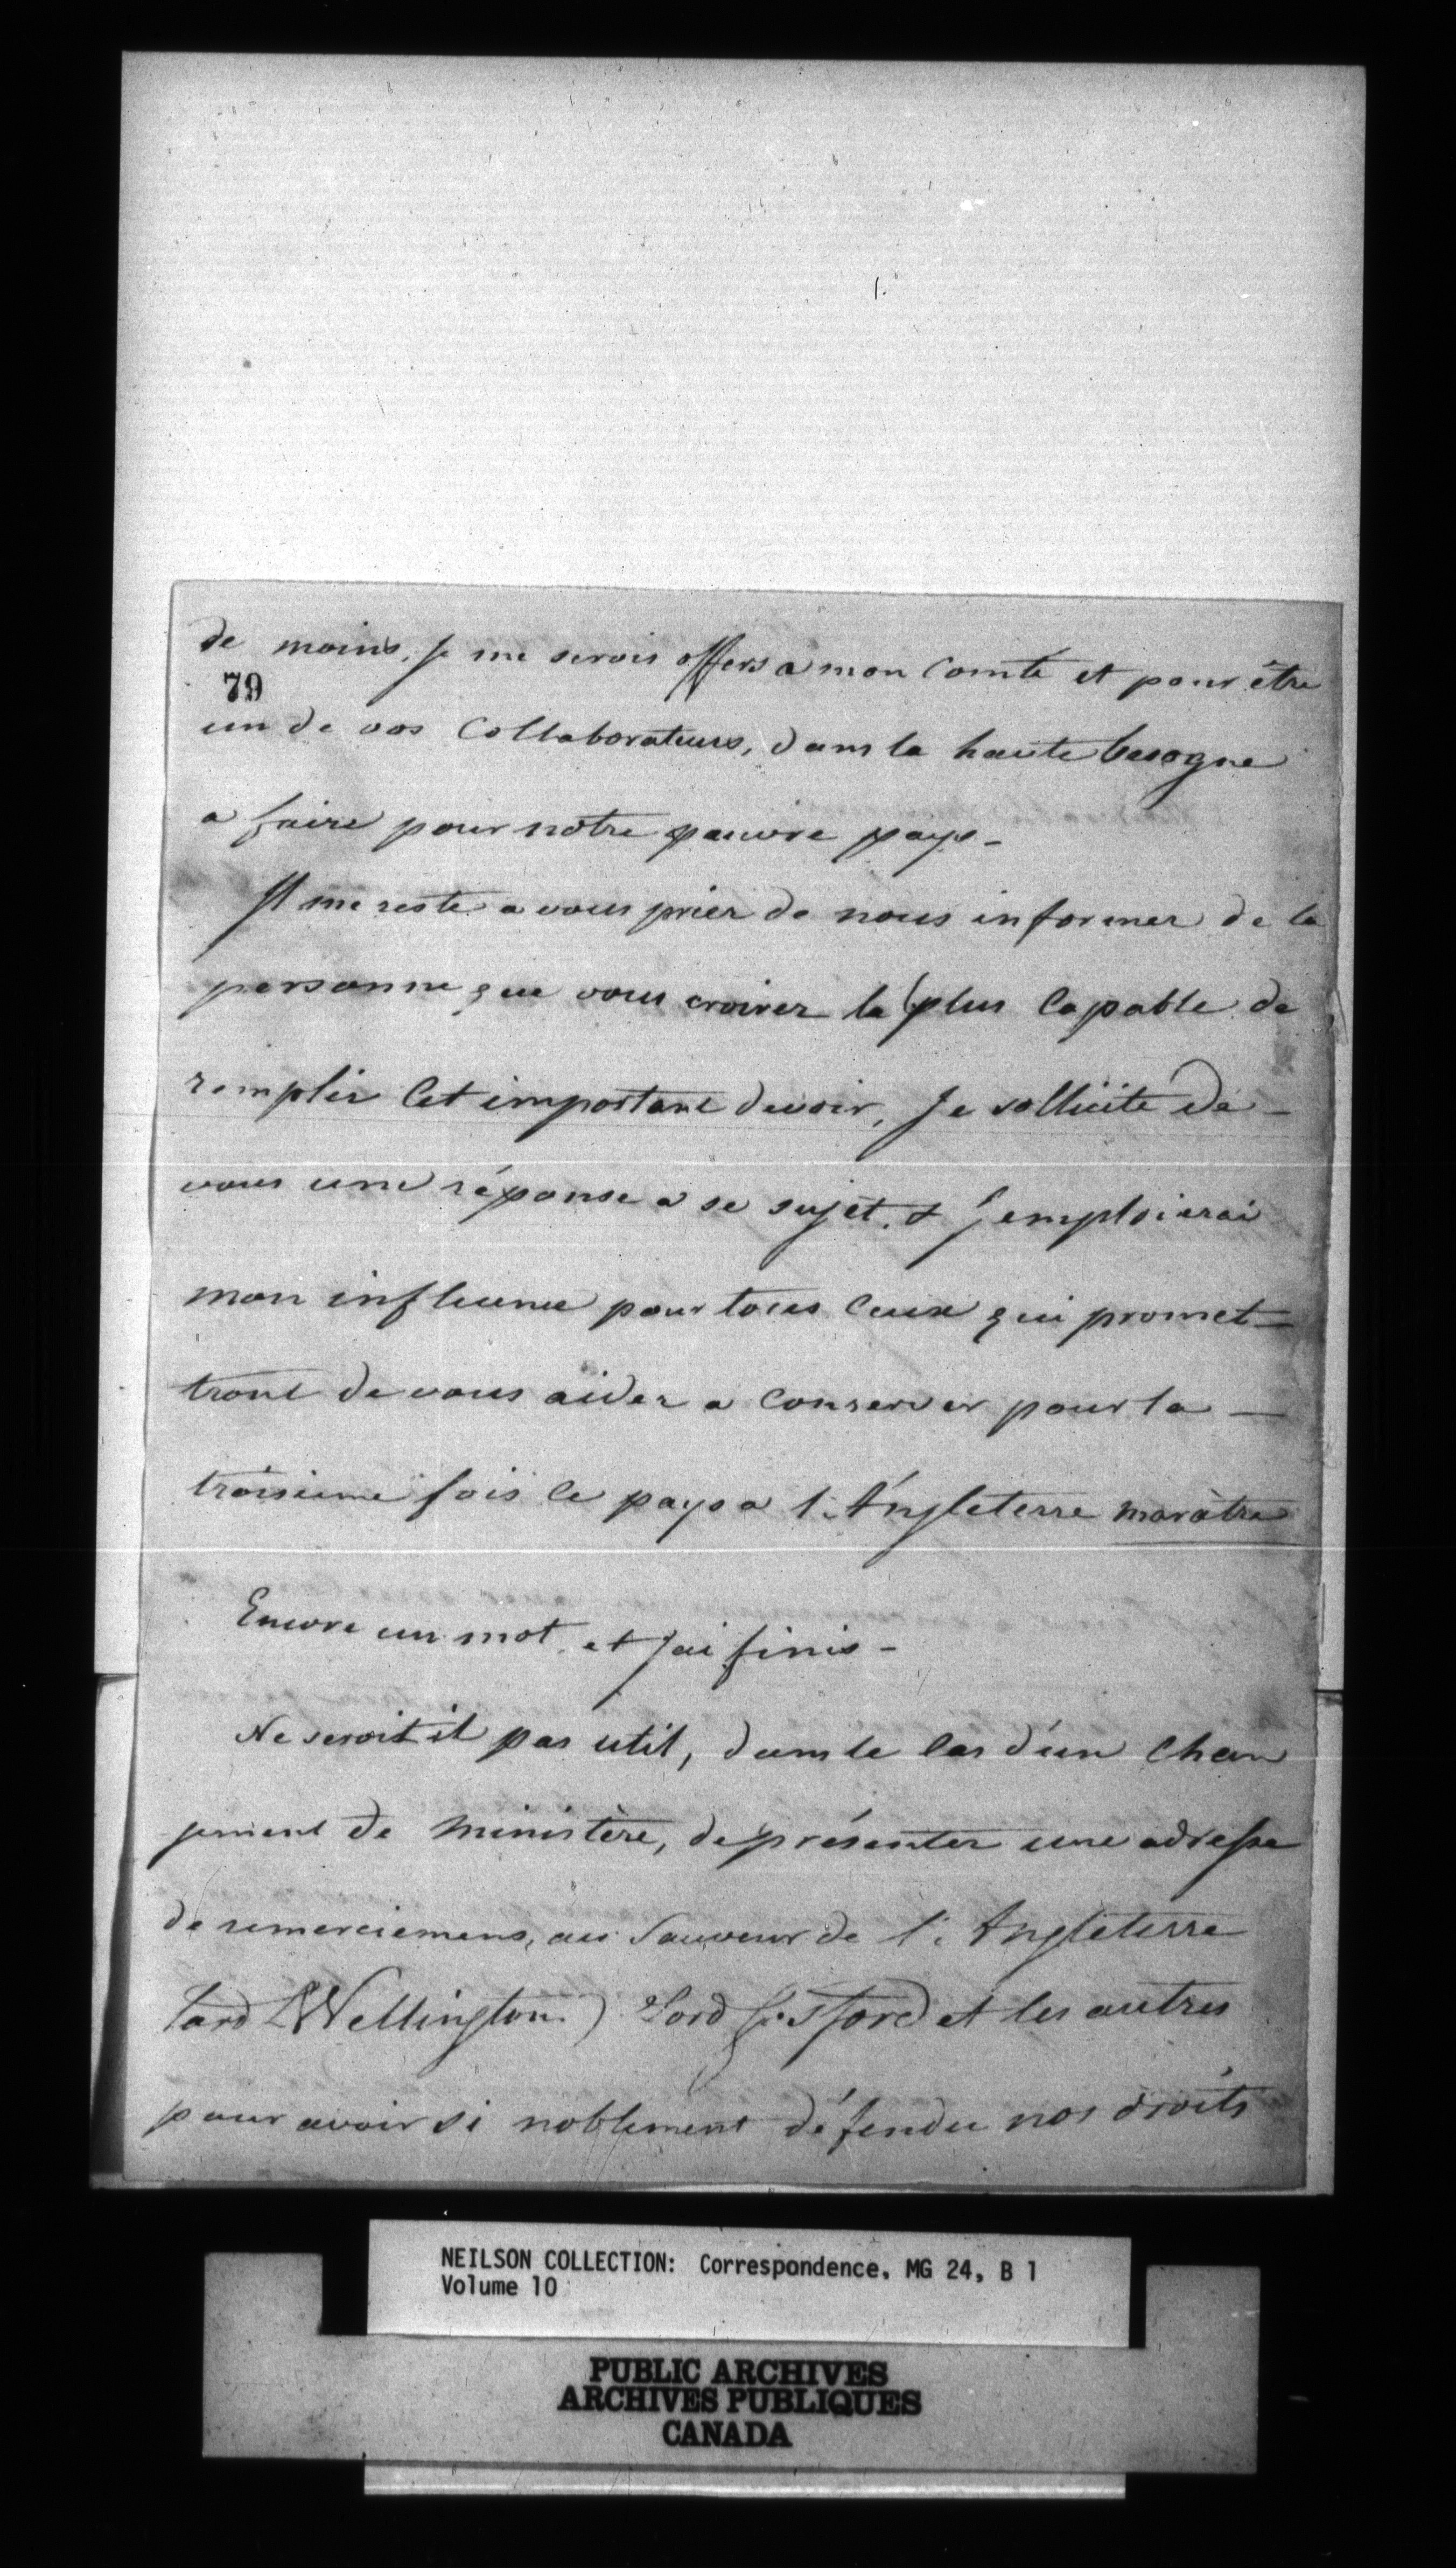 de moins, je me serois offers a mon Comté et pour être
79
un de vos Collaborateurs, dans la haute besogne
a faire pour notre pauvre pays -
Il me reste a vous prier de nous informer de la
personne que vous croirez la plus Capable de
remplir Cet important devoir, Je sollicite de -
vous une réponse a se sujet. & J'emploierai
mon influence pour tous Ceux qui promet=
tront de vous aider a Conserver pour la -
troisieme fois le pays a l'Angleterre marâtre
Encore un mot et J'ai finis -
Ne seroit il pas util, dans le Cas d'un Chan
gement de Ministère, de présenter une adresse
de remerciemens, au Sauveur de l'Angleterre
Lord Wellington) Lord Gosford et les autres
pour avoir si noblement défendu nos droits
NEILSON COLLECTION: Correspondence, MG 24, B 1
Volume 10
PUBLIC ARCHIVES
ARCHIVES PUBLIQUES
CANADA